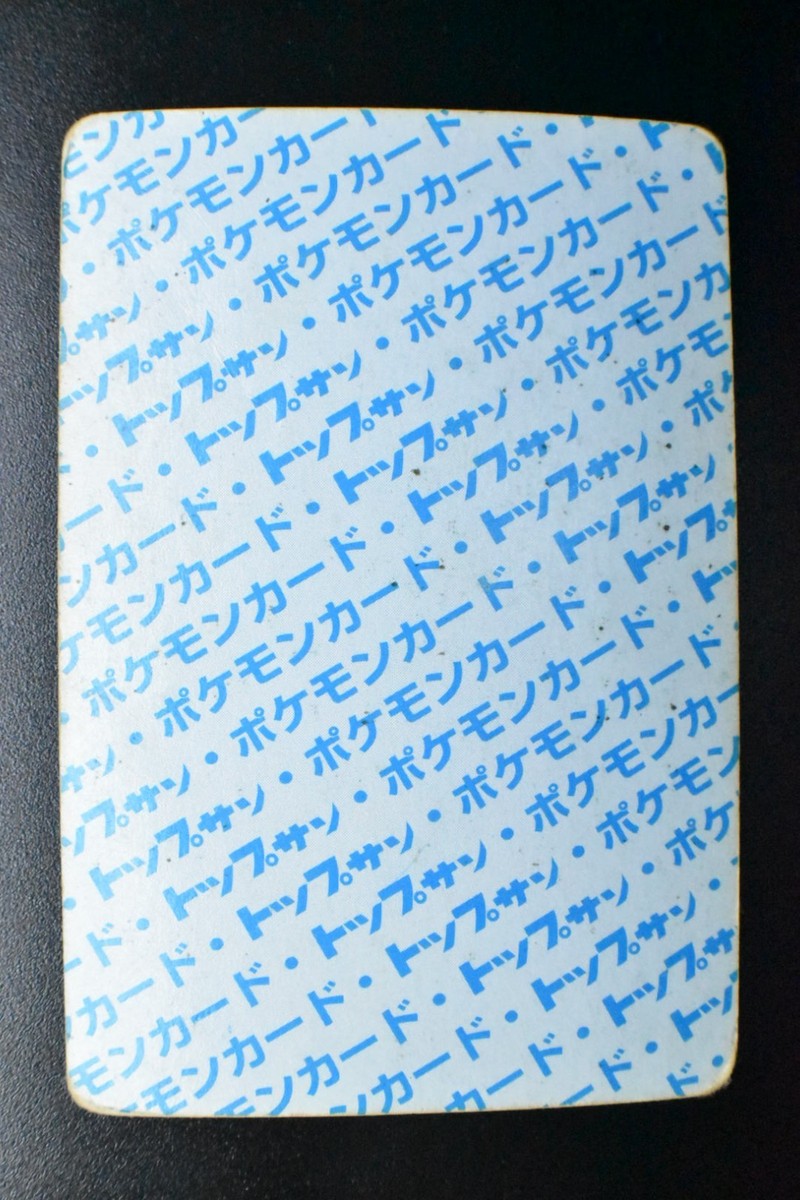 モンカ
ポケモンカー
・ポケモンカー
サン・ポケモンカード
ップサン・ポケモンカード・
・トップサン・ポケモンカード・ト
ード・トップサン・ポケモンカード・
ンカード・トップサン・ポケモンカード
ケモンカード・トップサン・ポケモンカ
・ポケモンカード・トップサン・ポケモ
サン・ポケモンカード・トップサン・ポ
ップサン・ポケモンカード・トップサン
・トップサン・ポケモンカード・トップ
ド・トップサン・ポケモンカード・トッ
カード・トップサン・ポケモンカード・
モンカード・トップサン・ポケモンカー
モンカード・トップサン・ポケモン
ンカード・トップサン・ポケ
カード・トップサン・
ード・トップサ
ド・トッ
ド・